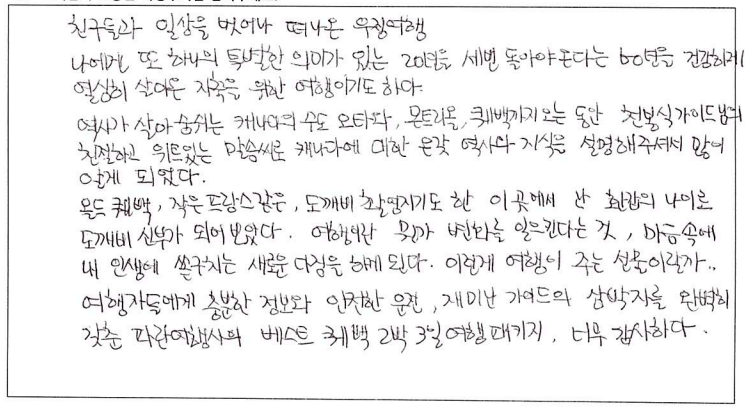 친구들과 일상을 벗어나 떠나온 우정여행
나에겐 또 하나의 특별한 의미가 있는 20년을 세번 돌아야온다는 60년을 건강하게
열심히 살아온 자축을 위한 여행이기도 하다.
역사가 살아 숨쉬는 캐나다의 수도 오타와, 몬트리올, 퀘백까지 오는 동안 천봉식가이드님의
친절하고 위트있는 말솜씨로 캐나다에 대한 온갖 역사와 지식을 설명해주셔서 많이
알게 되었다.
올드 퀘백, 작은프랑스같은, 도깨비 촬영지기도 한 이곳에서 난 환갑의 나이로
도깨비 신부가 되어보았다. 여행이란 뭔가 변화를 일으킨다는 것, 마음속에
내 인생에 솟구치는 새로운 다짐을 하게 된다. 이런게 여행이 주는 선물이랄까..
여행자들에게 충분한 정보와 안전한 운전, 재미난 가이드의 삼박자를 완벽히
갖춘 파란여행사의 베스트 퀘백 2박 3일여행패키지, 너무 감사하다.